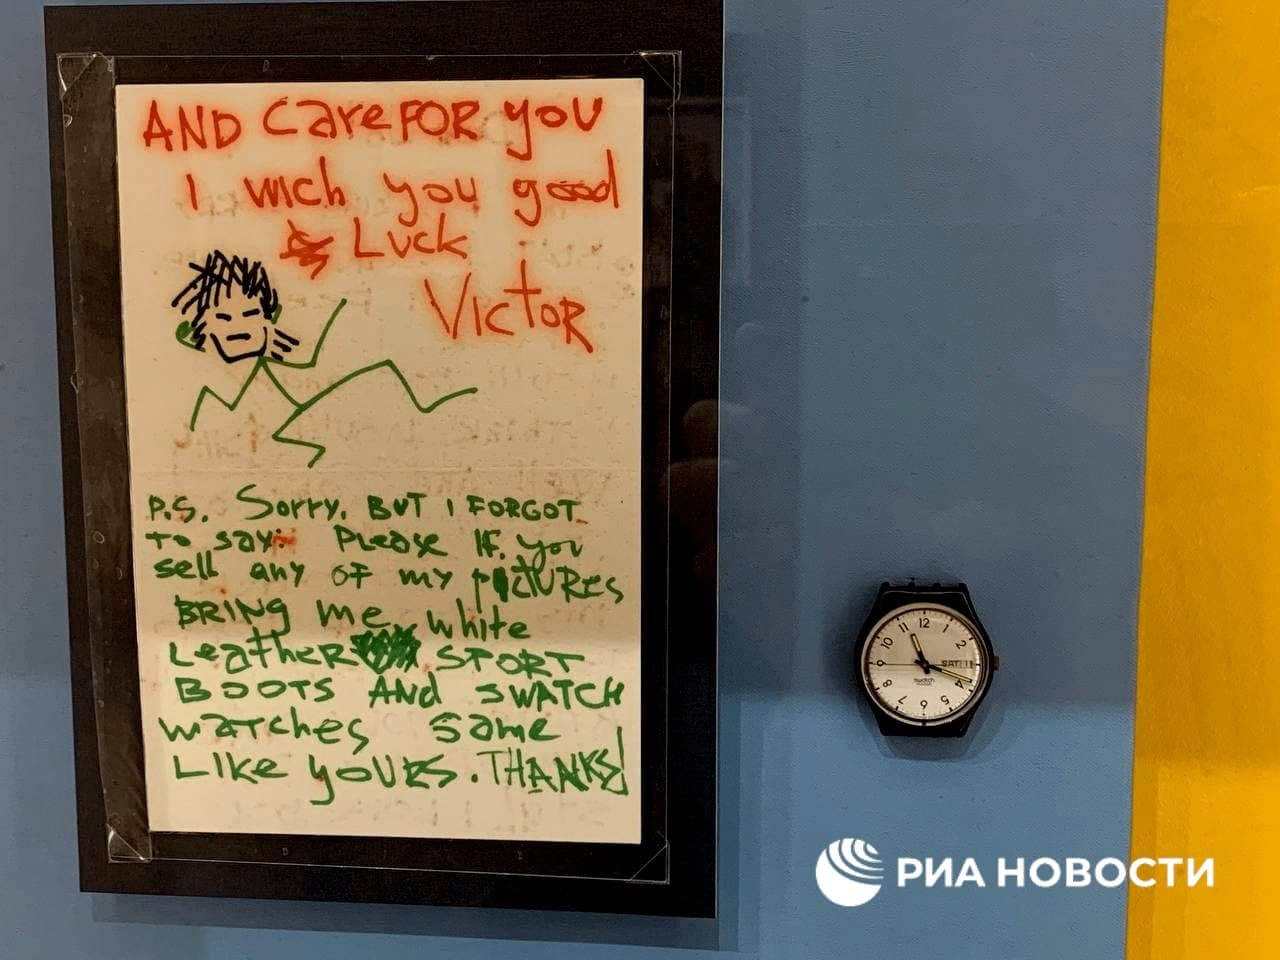 AND Care FOR you
I wich you good
Luck
VICTOR
P.S. Sorry, BUT I FORGOT
TO say: PLEASE IF you
sell any OF my pICTURES
BRING me white
LeatHER SPORT
BOOTS AND SWATCH
watches same
LIKE YOURS. THANKS!
12
1
2
4
5
6
7
8
9
10
11
SAT 11
swatch
РИА НОВОСТИ